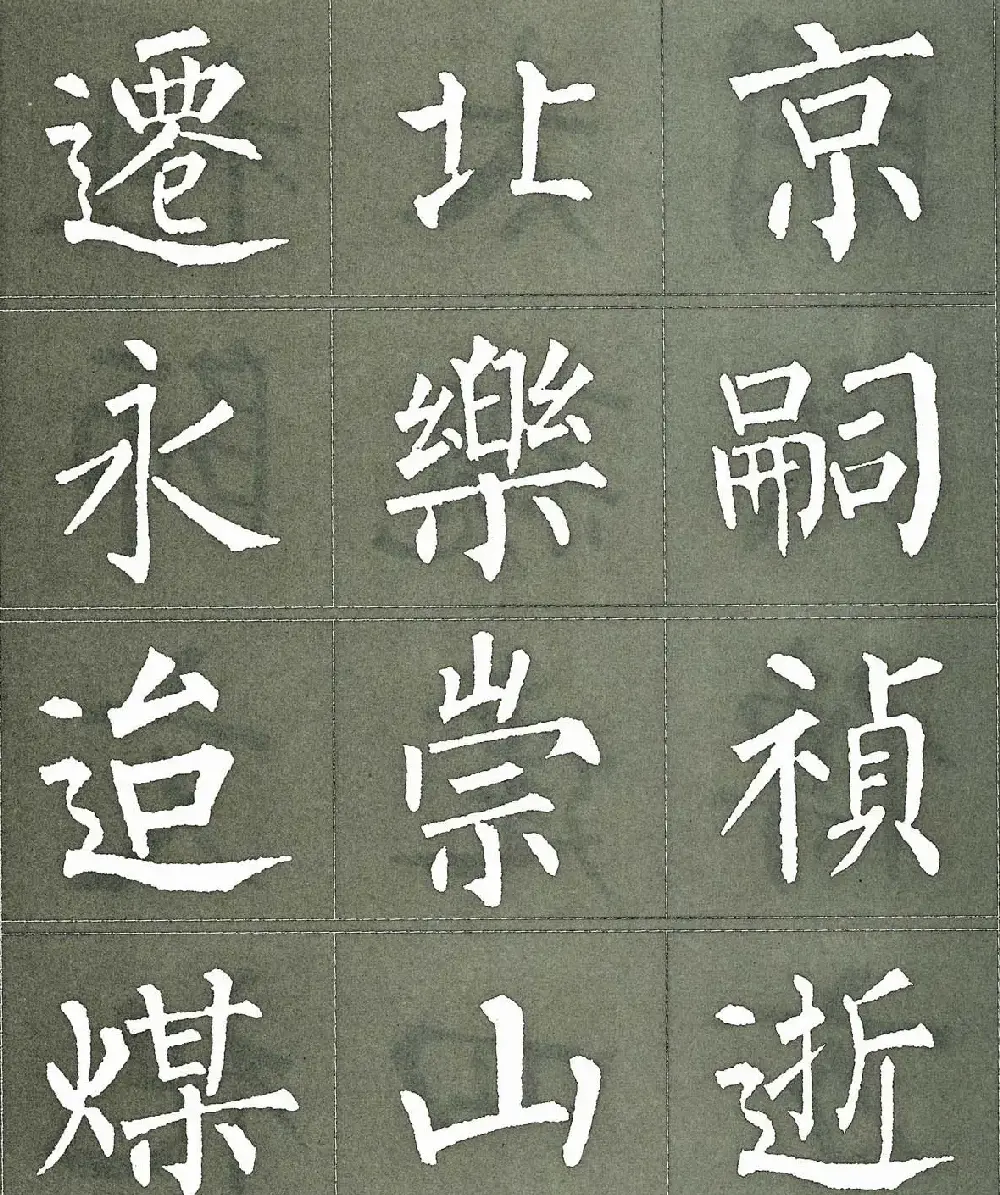 遷北京
永樂嗣
迨崇禎
煤山逝